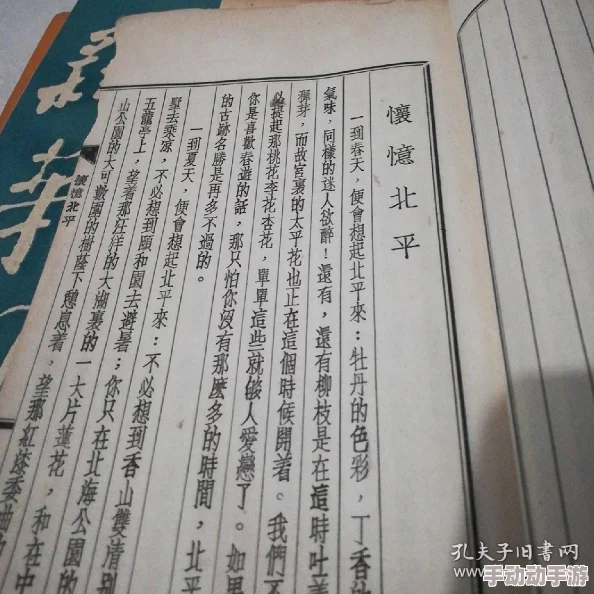 懷憶北平
一到春天，便會想起北平來：牡丹的色彩，丁香
氣味，同樣的迷人欲醉！還有，還有柳枝是在這時吐
芽，而故宮裏的太平花也正在這個時候開着。我們
提起那桃花李花杏花，單單這些就能够人愛戀了。如
你是喜歡春遊的話，那只怕你沒有那麽多的時間，北平
的古跡名勝是再多不過的。
一到夏天，便會想起北平來：不必想到香山雙清別
墅去乘凉，不必想到頤和園去避暑；你只在北海公園的
五龍亭上，望着那汪洋的大湖裏的一大片蓮花，和在中
山公園的大可數圍的樹蔭下憩息着，望那紅漆
懷憶北平
孔夫子旧書网
手动动手游